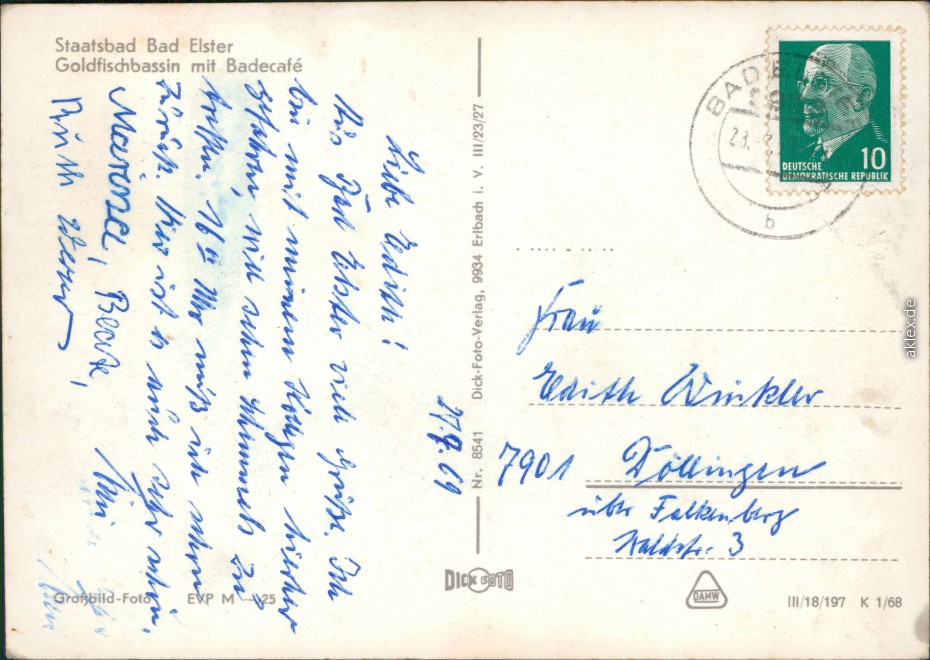 Staatsbad Bad Elster
Goldfischbassin mit Badecafé
27.9.69
Liebe Edith!
Aus Bad Elster viele Grüße. Ich
bin mit meinem Kollegen hierher
gefahren, will
treffen. 16 00 Uhr muß ich schon
zurück. Hier ist es auch sehr schön.
Marianne, Beate,
Ruth Werner,
Nr. 8541 Dick-Foto-Verlag, 9934 Erlbach i. V. III/23/27
BAD EL
23.
b
10
DEUTSCHE
DEMOKRATISCHE REPUBLIK
Frau
Edith Winkler
7901 Döllingen
über Falkenberg
Waldstr. 3
Großbild-Foto EVP M —,25
DICK FOTO
DAMW
III/18/197 K 1/68
aklex.de